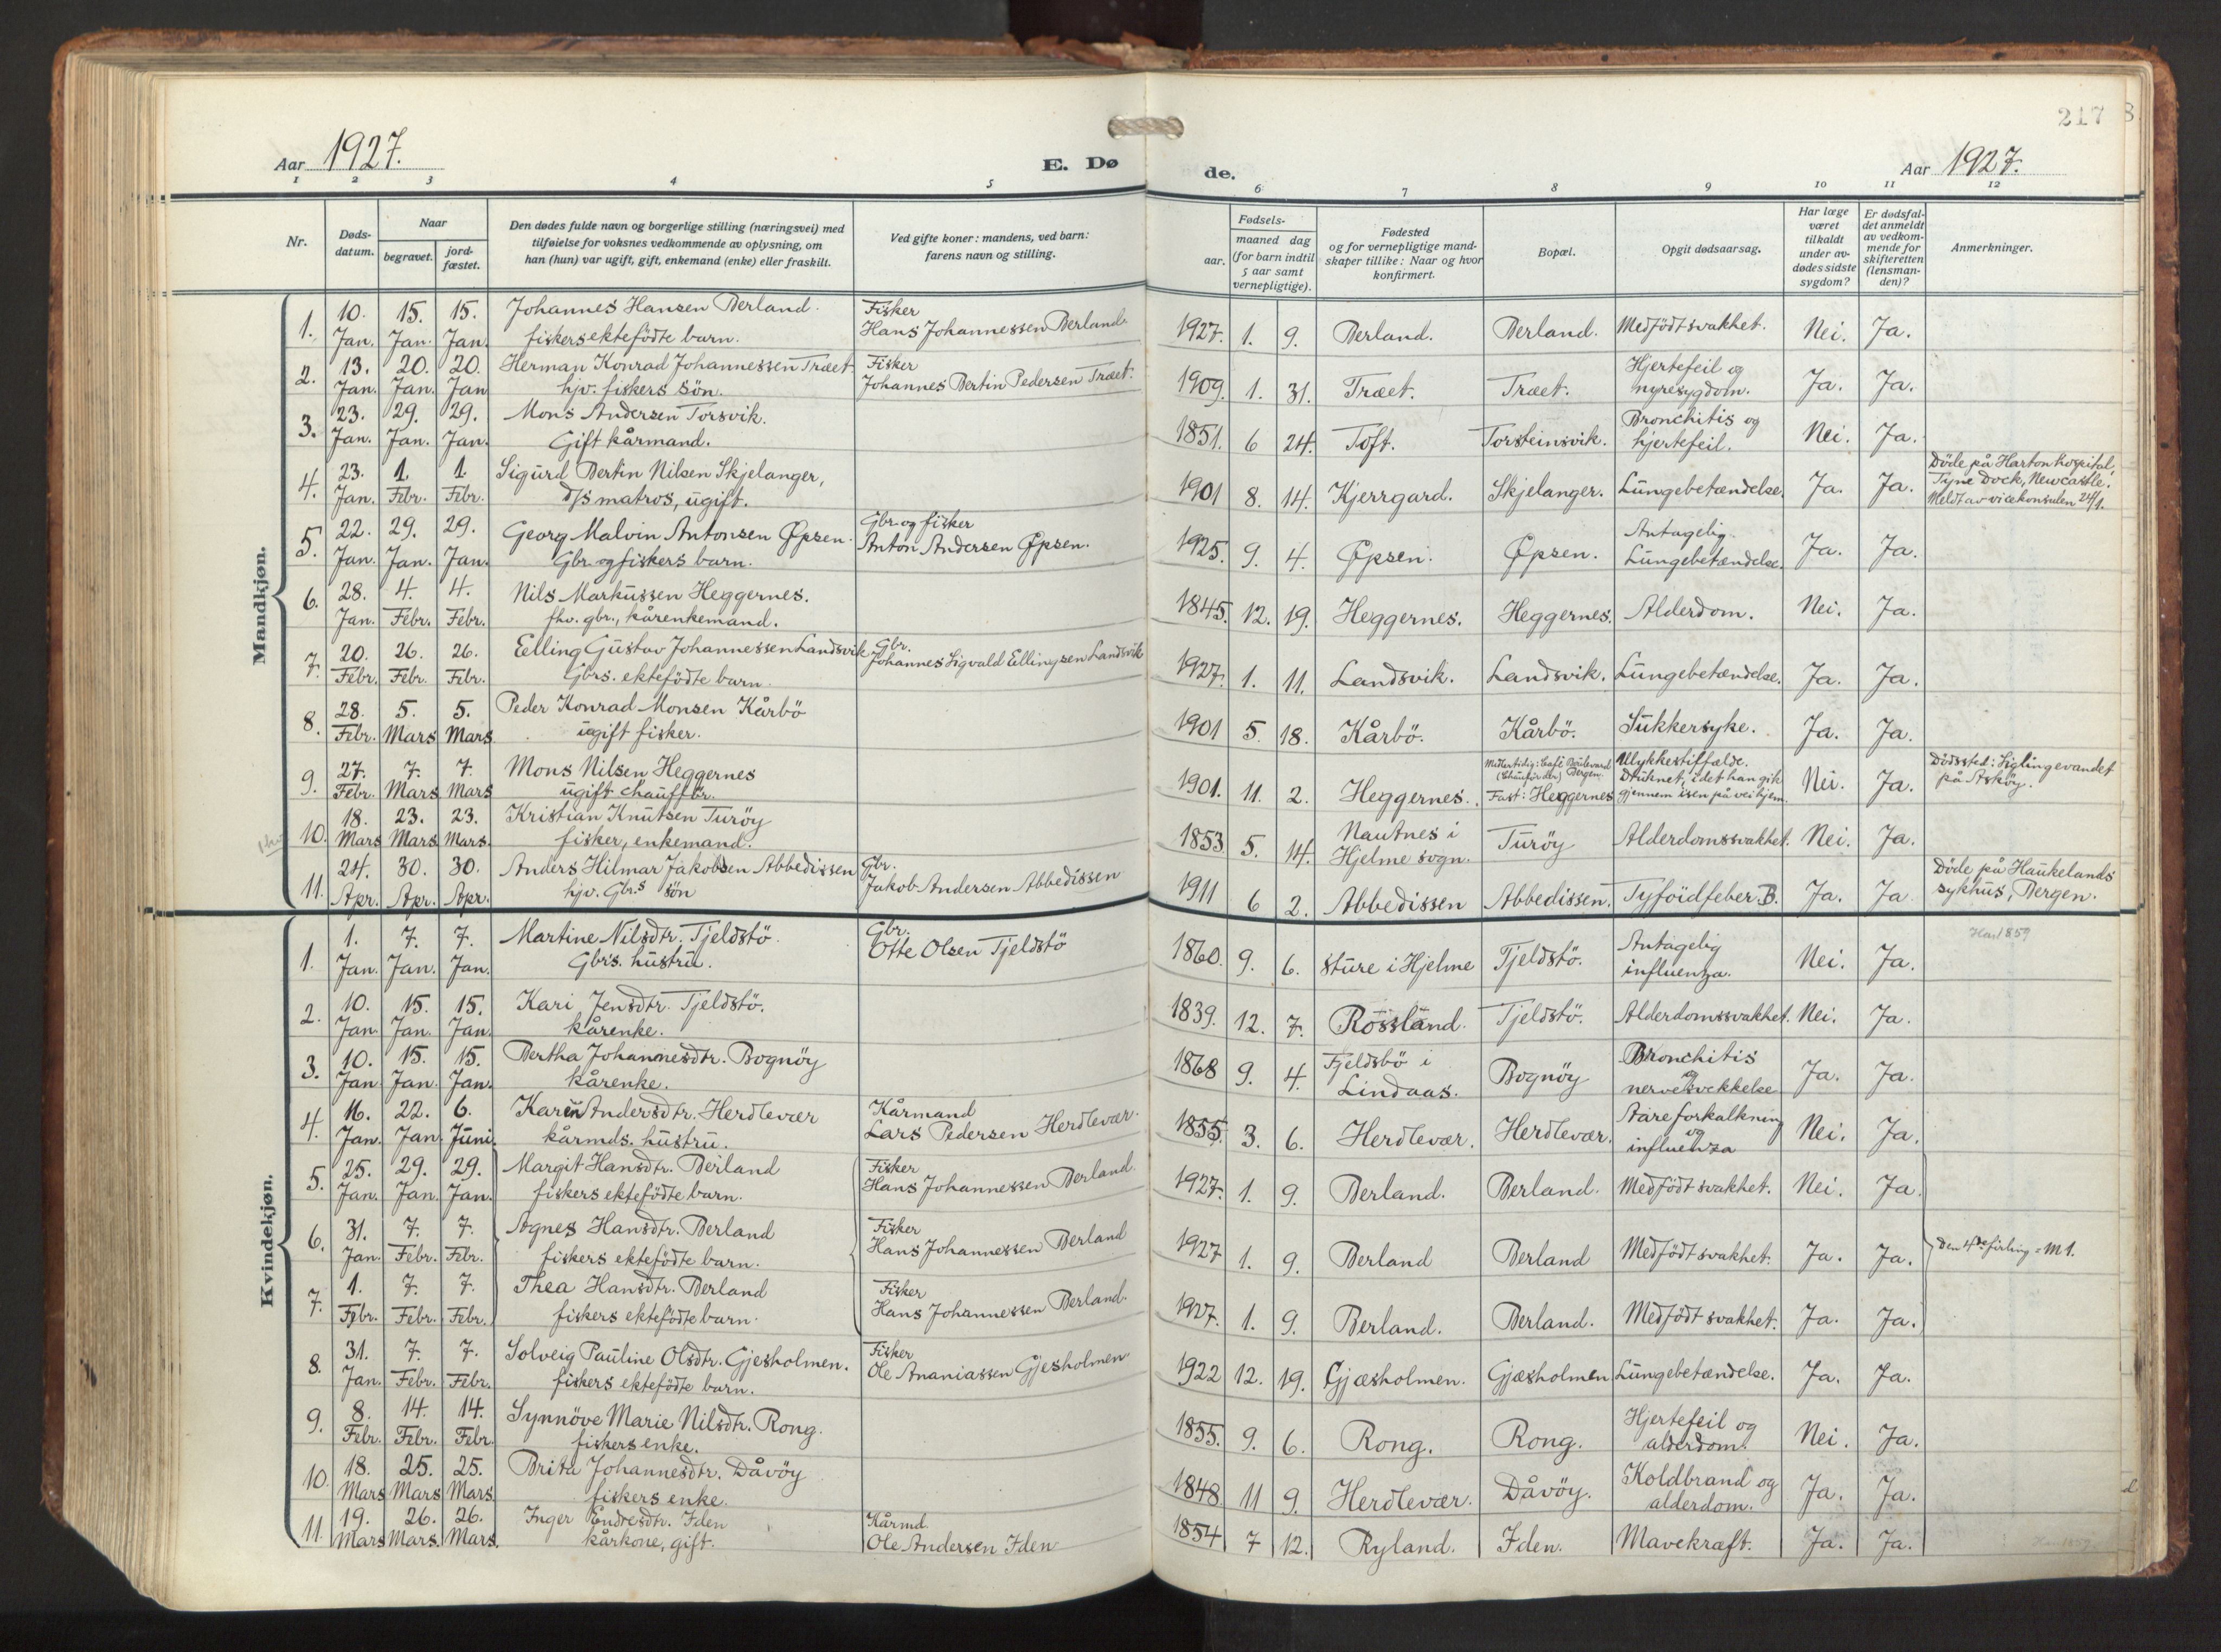 217
8
Aar 1927.
E. Dø
de.
Aar 1927.
1 2 3 4 5 6 7 8 9 10 11 12
Nr.
Døds-
datum.
Naar
begravet.
jord-
fæstet.
Den dødes fulde navn og borgerlige stilling (næringsvei) med
tilføielse for voksnes vedkommende av oplysning, om
han (hun) var ugift, gift, enkemand (enke) eller fraskilt.
Ved gifte koner: mandens, ved barn:
farens navn og stilling.
Fødsels-
aar.
maaned dag
(for barn indtil
5 aar samt
vernepligtige).
Fødested
og for vernepligtige mand-
skaper tillike: Naar og hvor
konfirmert.
Bopæl.
Opgit dødsaarsag.
Har læge
været
tilkaldt
under av-
dødes sidste
sygdom?
Er dødsfal-
det anmeldt
av vedkom-
mende for
skifteretten
(lensman-
den)?
Anmerkninger.
Mandkjøn.
1. 10. Jan. 15. Jan. 15. Jan.
Johannes Hansen Berland.
fiskers ektefödte barn.
Fisker
Hans Johannessen Berland.
1927. 1. 9. Berland. Berland. Medfödt svakhet. Nei. Ja.
2. 13. Jan. 20. Jan. 20. Jan
Herman Konrad Johannessen Træet.
hjv. fiskers sön.
Fisker
Johannes Bertin Pedersen Træet.
1909. 1. 31. Træet. Træet. Hjertefeil og
nyresygdom. Ja. Ja.
3. 23. Jan. 29. Jan. 29. Jan.
Mons Andersen Torsvik.
Gift kårmand.
1851. 6 24. Toft. Torsteinsvik. Bronchitis og
hjertefeil. Nei. Ja.
4. 23. Jan. 1. Febr. 1. Febr.
Sigurd Bertin Nilsen Skjelanger,
D/s matros, ugift.
1901 8. 14. Kjerrgard. Skjelanger. Lungebetændelse. Ja. Ja.
Döde på Harton hospital,
Tyne Dock, Newcastle.
Meldt av vicekonsulen 24/1.
5. 22. Jan. 29. Jan. 29. Jan.
Georg Malvin Antonsen Öpsen.
Gbr. og fiskers barn.
Gbr. og fisker
Anton Andersen Öpsen.
1925. 9. 4. Öpsen. Öpsen. Antagelig
Lungebetændelse. Ja. Ja.
6. 28. Jan. 4. Febr. 4. Febr.
Nils Markussen Heggernes.
fhv. gbr., kårenkemand.
1845. 12. 19. Heggernes. Heggernes. Alderdom. Nei. Ja.
7. 20. Febr. 26. Febr. 26. Febr.
Elling Gustav Johannessen Landsvik
Gbrs. ektefödte barn.
Gbr.
Johannes Sigvald Ellingsen Landsvik
1927. 1. 11. Landsvik. Landsvik. Lungebetændelse. Ja. Ja.
8. 28. Febr. 5. Mars 5. Mars
Peder Konrad Monsen Kårbö
ugift fisker.
1901 5. 18. Kårbö. Kårbö. Sukkersyke. Ja. Ja.
9. 27. Febr. 7. Mars 7. Mars
Mons Nilsen Heggernes
ugift chauffør.
1901. 11. 2. Heggernes. Midlertidig: Café Boulevard
Bergen.
Fast: Heggernes
Ulykkestilfælde.
Druknet, idet han gik
gjennem isen på vei hjem.
Nei. Ja.
Dödssted: Siglingevandet
på Asköy.
10. 18. Mars 23. Mars 23. Mars.
Kristian Knutsen Turöy
fisker, enkemand.
1853 5. 14. Nautnes i
Hjelme sogn. Turöy Alderdomssvakhet. Nei. Ja.
11. 24. Apr. 30. Apr. 30. Apr.
Anders Hilmar Jakobsen Abbedissen
hjv. Gbr.s sön
Gbr.
Jakob Andersen Abbedissen
1911 6 2. Abbedissen Abbedissen. Tyfoidfeber B. Ja. Ja
Döde på Haukelands
sykhus, Bergen.
Kvindekjøn.
1. 1. Jan. 7. Jan. 7. Jan.
Martine Nilsdtr. Tjeldstö.
Gbrs. hustru.
Gbr.
Otte Olsen Tjeldstö
1860. 9. 6. Sture i Hjelme Tjeldstö. Antagelig
influenza. Nei. Ja.
Har 1859
2. 10. Jan. 15. Jan. 15. Jan.
Kari Jensdtr. Tjeldstö.
kårenke.
1839. 12. 7. Rossland. Tjeldstö. Alderdomssvakhet. Nei. Ja.
3. 10. Jan 15. Jan. 15. Jan.
Bertha Johannesdtr. Bognöy
kårenke.
1868 9. 4. Fjeldsbö i
Lindaas. Bognöy Bronchitis
og
nervesvekkelse Ja. Ja.
4. 16. Jan. 22. Jan 6. Juni.
Karen Andersdtr. Herdlevær
kårmds. hustru.
Kårmand
Lars Pedersen Herdlevær.
1855. 3. 6. Herdlevær. Herdlevær. Aareforkalkning
og
influenza Nei. Ja.
5. 25. Jan. 29. Jan. 29. Jan.
Margit Hansdtr. Berland
fiskers ektefödte barn.
Fisker
Hans Johannessen Berland.
1927. 1. 9. Berland. Berland. Medfödt svakhet. Nei. Ja.
6. 31. Jan. 7. Febr. 7. Febr.
Agnes Hansdtr. Berland
fiskers ektefödte barn.
Fisker
Hans Johannessen Berland
1927 1. 9. Berland Berland Medfödt svakhet. Ja. Ja.
Den 4de firling = M 1.
7. 1. Febr. 7. Febr. 7. Febr.
Thea Hansdtr. Berland
fiskers ektefödte barn.
Fisker
Hans Johannessen Berland.
1927. 1. 9. Berland. Berland. Medfödt svakhet. Ja. Ja.
8. 31. Jan. 7. Febr. 7. Febr.
Solveig Pauline Olsdtr. Gjesholmen.
fiskers ektefödte barn.
Fisker
Ole Ananiassen Gjesholmen.
1922 12. 19. Gjæsholmen. Gjæsholmen Lungebetændelse. Ja. Ja.
9. 8. Febr. 14. Febr. 14. Febr
Synnöve Marie Nilsdtr. Rong.
fiskers enke.
1855. 9. 6. Rong. Rong. Hjertefeil og
alderdom. Nei. Ja.
10. 18. Mars 25. Mars 25. Mars.
Brita Johannesdtr. Dåvöy
fiskers enke.
1848. 11 9. Herdlevær. Dåvöy. Koldbrand og
alderdom. Ja. Ja.
11. 19. Mars 26. Mars. 26. Mars.
Inger Endresdtr. Iden
kårkone, gift.
Kårmd.
Ole Andersen Iden
1854 7 12. Ryland. Iden. Mavekræft. Ja. Ja.